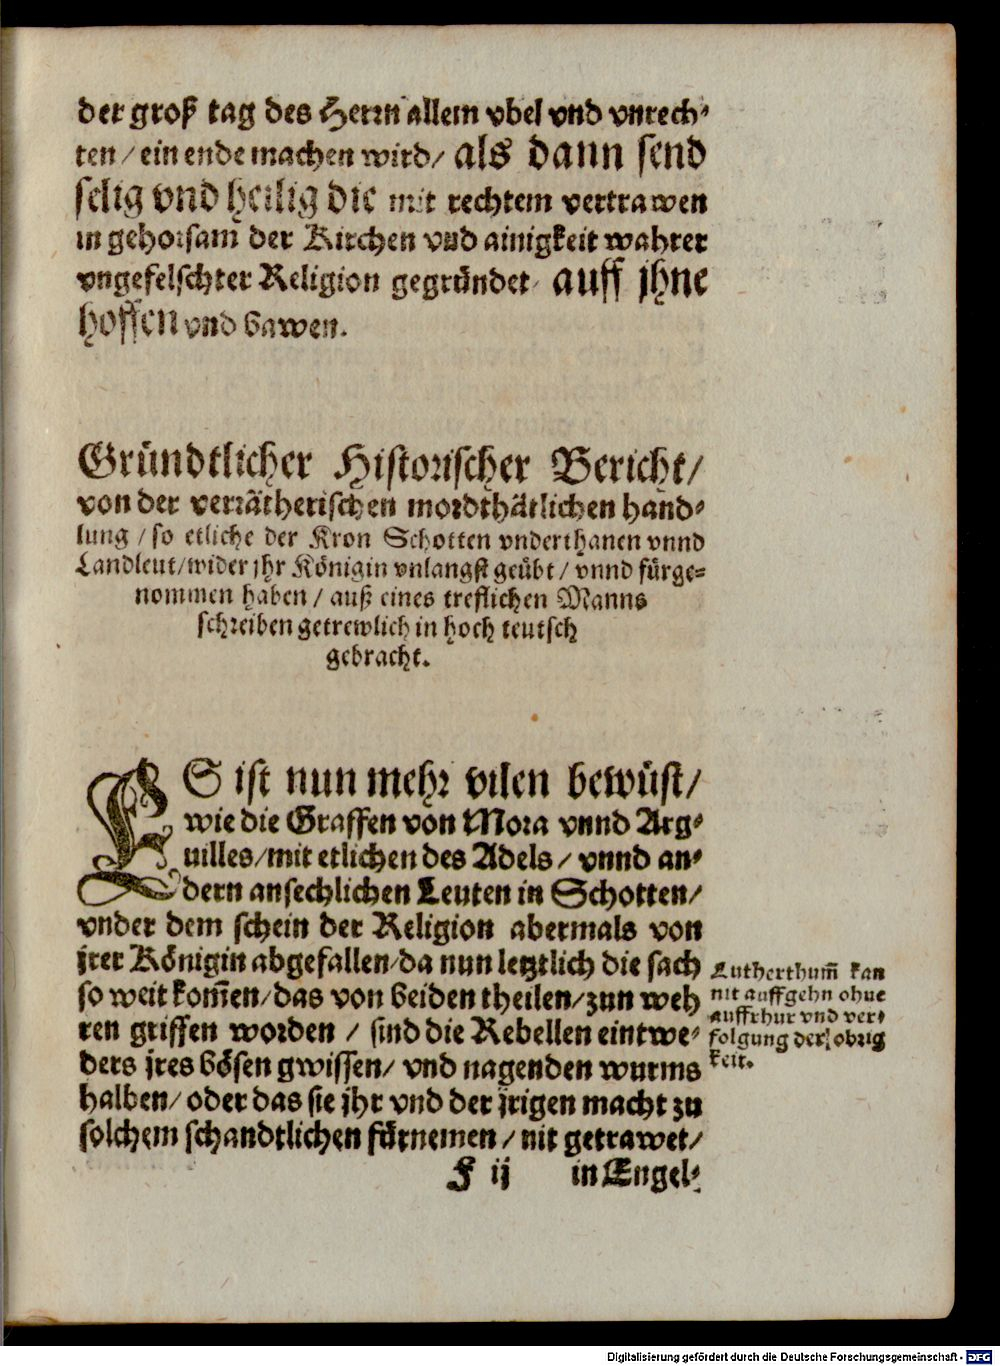 der groß tag des Herrn allem vbel vnd vnrech-
ten / ein ende machen wird / als dann send
selig vnd heilig die mit rechtem vertrawen
in gehorsam der Kirchen vnd ainigkeit wahrer
vngefelschter Religion gegründet / auff jhne
hoffen vnd bawen.
Gründtlicher Historischer Bericht /
von der verrätherischen mordthätlichen hand-
lung / so etliche der Kron Schotten vnderthanen vnnd
Landleut / wider jhr Königin vnlangst geübt / vnnd fürge-
nommen haben / auß eines treflichen Manns
schreiben getrewlich in hoch teutsch
gebracht.
ES ist nun mehr vilen bewüst /
wie die Graffen von Mora vnnd Arg-
uilles / mit etlichen des Adels / vnnd an-
dern ansechlichen Leuten in Schotten /
vnder dem schein der Religion abermals von
jrer Königin abgefallen / da nun letztlich die sach
so weit kom̃en / das von beiden theilen / zun weh
ren griffen worden / sind die Rebellen eintwe-
ders jres bösen gwissen / vnd nagenden wurms
halben / oder das sie jhr vnd der jrigen macht zu
solchem schandtlichen fürnemen / nit getrawet /
F ij in Engel-
Lutherthum̃ kan
nit auffgehn ohne
auffrhur vnd ver-
folgung der obrig
keit.
Digitalisierung gefördert durch die Deutsche Forschungsgemeinschaft - DFG